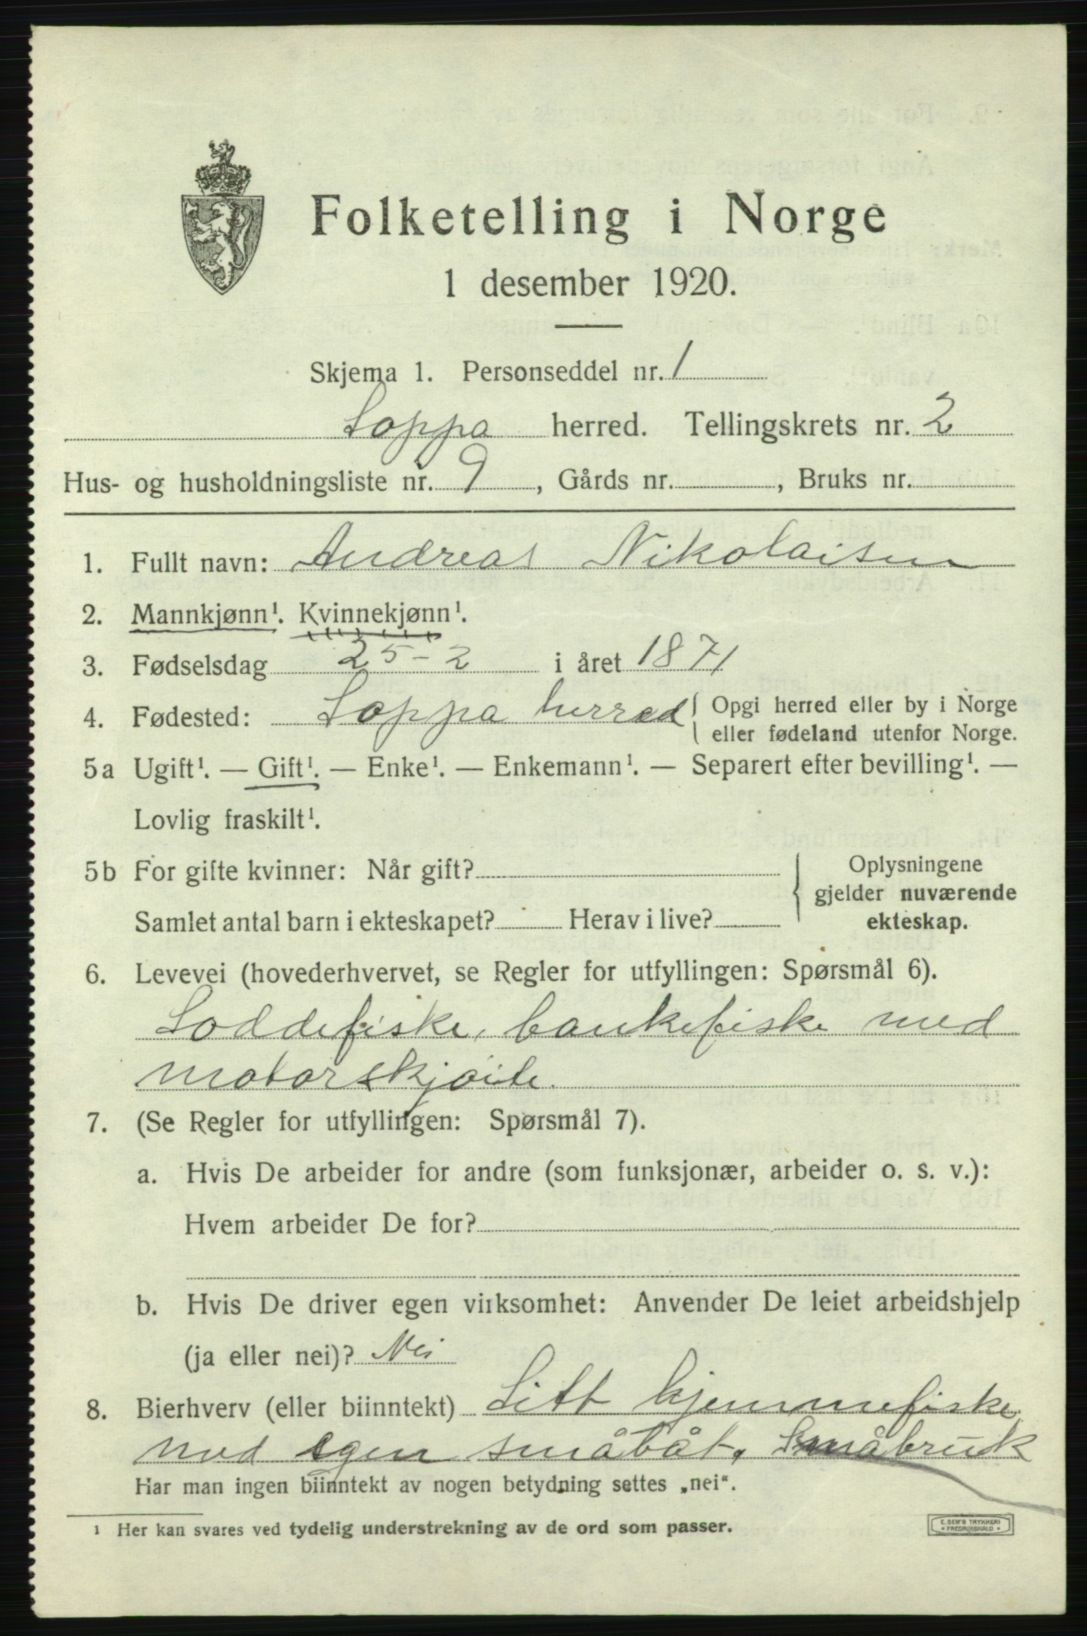 Folketelling i Norge
1 desember 1920.
Skjema 1. Personseddel nr. 1
Loppa herred. Tellingskrets nr. 2
Hus- og husholdningsliste nr. 9, Gårds nr. , Bruks nr.
1. Fullt navn: Andreas Nikolaisen
2. Mannkjønn¹. Kvinnekjønn¹.
3. Fødselsdag 25-2 i året 1871
4. Fødested: Loppa herred { Opgi herred eller by i Norge
eller fødeland utenfor Norge.
5a Ugift¹. — Gift¹. — Enke¹. — Enkemann¹. — Separert efter bevilling¹. —
Lovlig fraskilt¹.
5b For gifte kvinner: Når gift?
Samlet antal barn i ekteskapet? Herav i live?
{ Oplysningene
gjelder nuværende
ekteskap.
6. Levevei (hovederhvervet, se Regler for utfyllingen: Spørsmål 6).
Loddefiske, bankefiske med
motorskjøite.
7. (Se Regler for utfyllingen: Spørsmål 7).
a. Hvis De arbeider for andre (som funksjonær, arbeider o. s. v.):
Hvem arbeider De for?
b. Hvis De driver egen virksomhet: Anvender De leiet arbeidshjelp
(ja eller nei)? Nei
8. Bierhverv (eller biinntekt) Litt hjemmefiske
med egen småbåt, Småbruk
Har man ingen biinntekt av nogen betydning settes „nei".
¹ Her kan svares ved tydelig understrekning av de ord som passer.
E. SEM'S TRYKKERI
• FREDRIKSHALD •